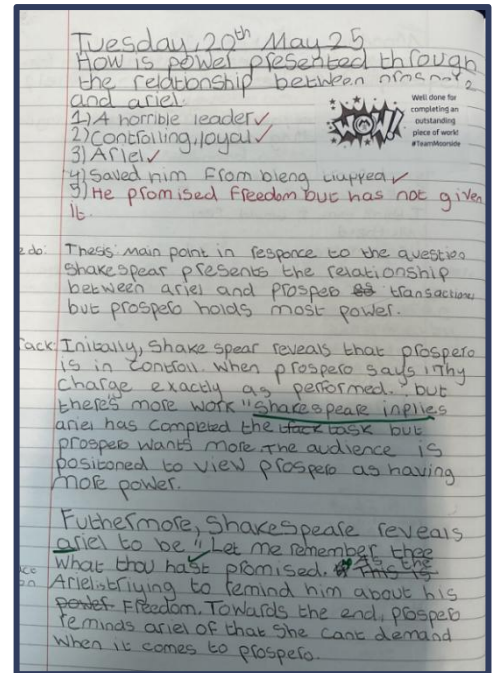 Tuesday, 20th May 25
How is power presented through
the relationship between
and ariel.
1) A horrible leader ✓
2) Controlling, loyal ✓
3) Ariel ✓
4) Saved him from bieng ✓
5) He promised freedom but has not given
it.
WOW!
Well done for
completing an
outstanding
piece of work!
#TeamMoorside
do: Thesis: main point in responce to the questio
shakespear presents the relationship
between ariel and prospero transactiona
but prospero holds most power.
Initally, Shakespear reveals that prospero
is in controll. When prospero says "Thy
charge exactly as performed.. but
there's more work" Shakespeare inplies
ariel has completed the task but
prospero wants more. The audience is
positoned to view prospero as having
more power.
Futhermore, Shakespeare reveals
ariel to be "Let me remember thee
What thou hast promised. This is
Ariel striying to remind him about his
power Freedom. Towards the end, prospero
reminds ariel of that She cant demand
when it comes to prospero.